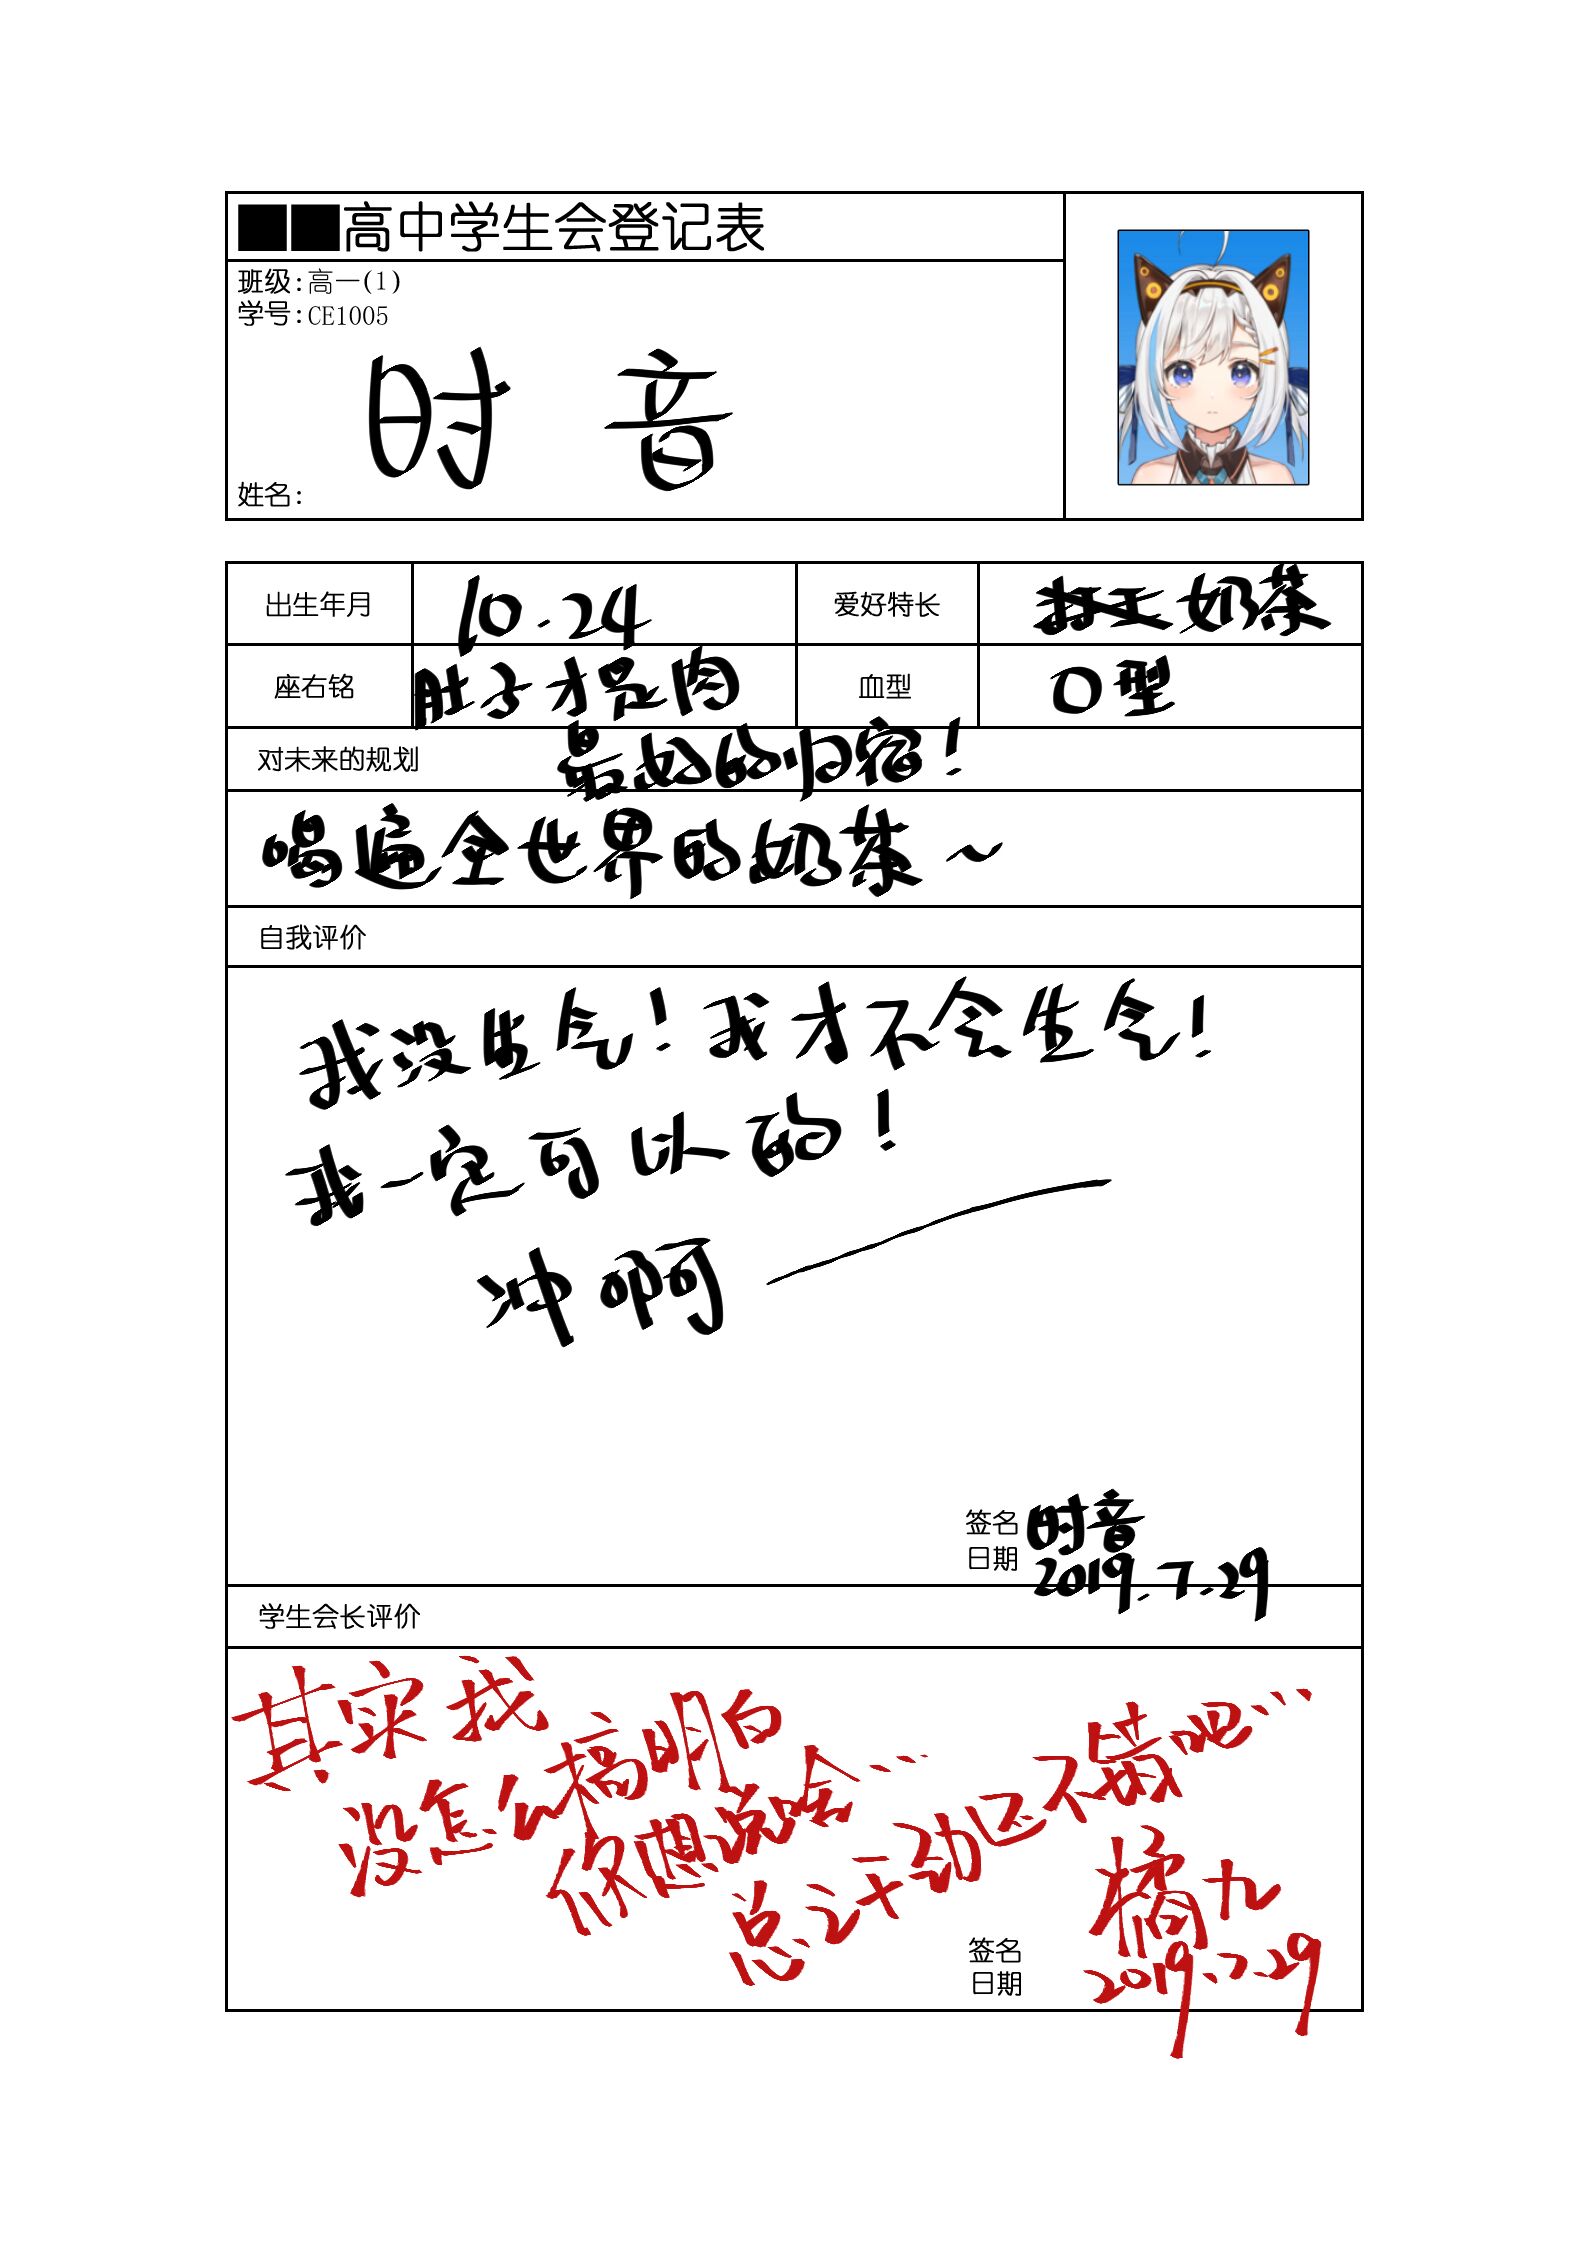 ■■高中学生会登记表
班级:高一(1)
学号:CE1005
姓名: 时音
出生年月 10.24 爱好特长 打工奶茶
座右铭 肚子才是肉 血型 O型
最好的归宿!
对未来的规划
喝遍全世界的奶茶~
自我评价
我没生气!我才不会生气!
我一定可以的!
冲啊——
签名 时音
日期 2019.7.29
学生会长评价
其实我
没怎么搞明白
你想说啥…
总之干劲还不错吧…
签名 橘九
日期 2019.7.29